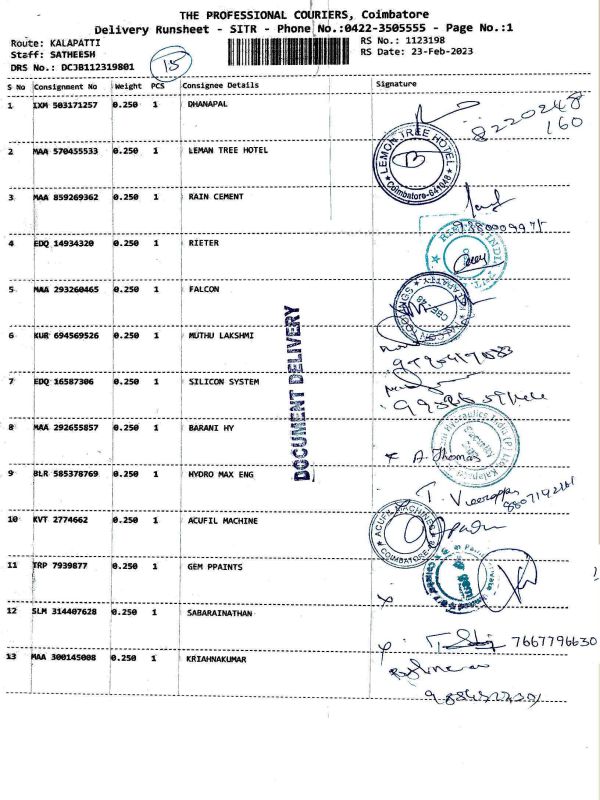 THE PROFESSIONAL COURIERS, Coimbatore
Delivery Runsheet - SITR - Phone No.:0422-3505555 - Page No.:1
Route: KALAPATTI
RS No.: 1123198
Staff: SATHEESH
RS Date: 23-Feb-2023
DRS No.: DCJB112319801
15
S No Consignment No Weight PCS Consignee Details Signature
1 IXM 503171257 0.250 1 DHANAPAL
8220248
160
2 MAA 570455533 0.250 1 LEMAN TREE HOTEL
LEMON TREE HOTEL
Coimbatore-641048
3 MAA 859269362 0.250 1 RAIN CEMENT
4 EDQ 14934320 0.250 1 RIETER
5 MAA 293260465 0.250 1 FALCON
6 KUR 694569526 0.250 1 MUTHU LAKSHMI
DOCUMENT DELIVERY
7 EDQ 16587306 0.250 1 SILICON SYSTEM
8 MAA 292655857 0.250 1 BARANI HY
A. Thomas
9 BLR 585378769 0.250 1 HYDRO MAX ENG
10 KVT 2774662 0.250 1 ACUFIL MACHINE
ACUFIL MACHINES
COIMBATORE
11 TRP 7939877 0.250 1 GEM PPAINTS
12 SLM 314407628 0.250 1 SABARAINATHAN
7667796630
13 MAA 300145008 0.250 1 KRIAHNAKUMAR